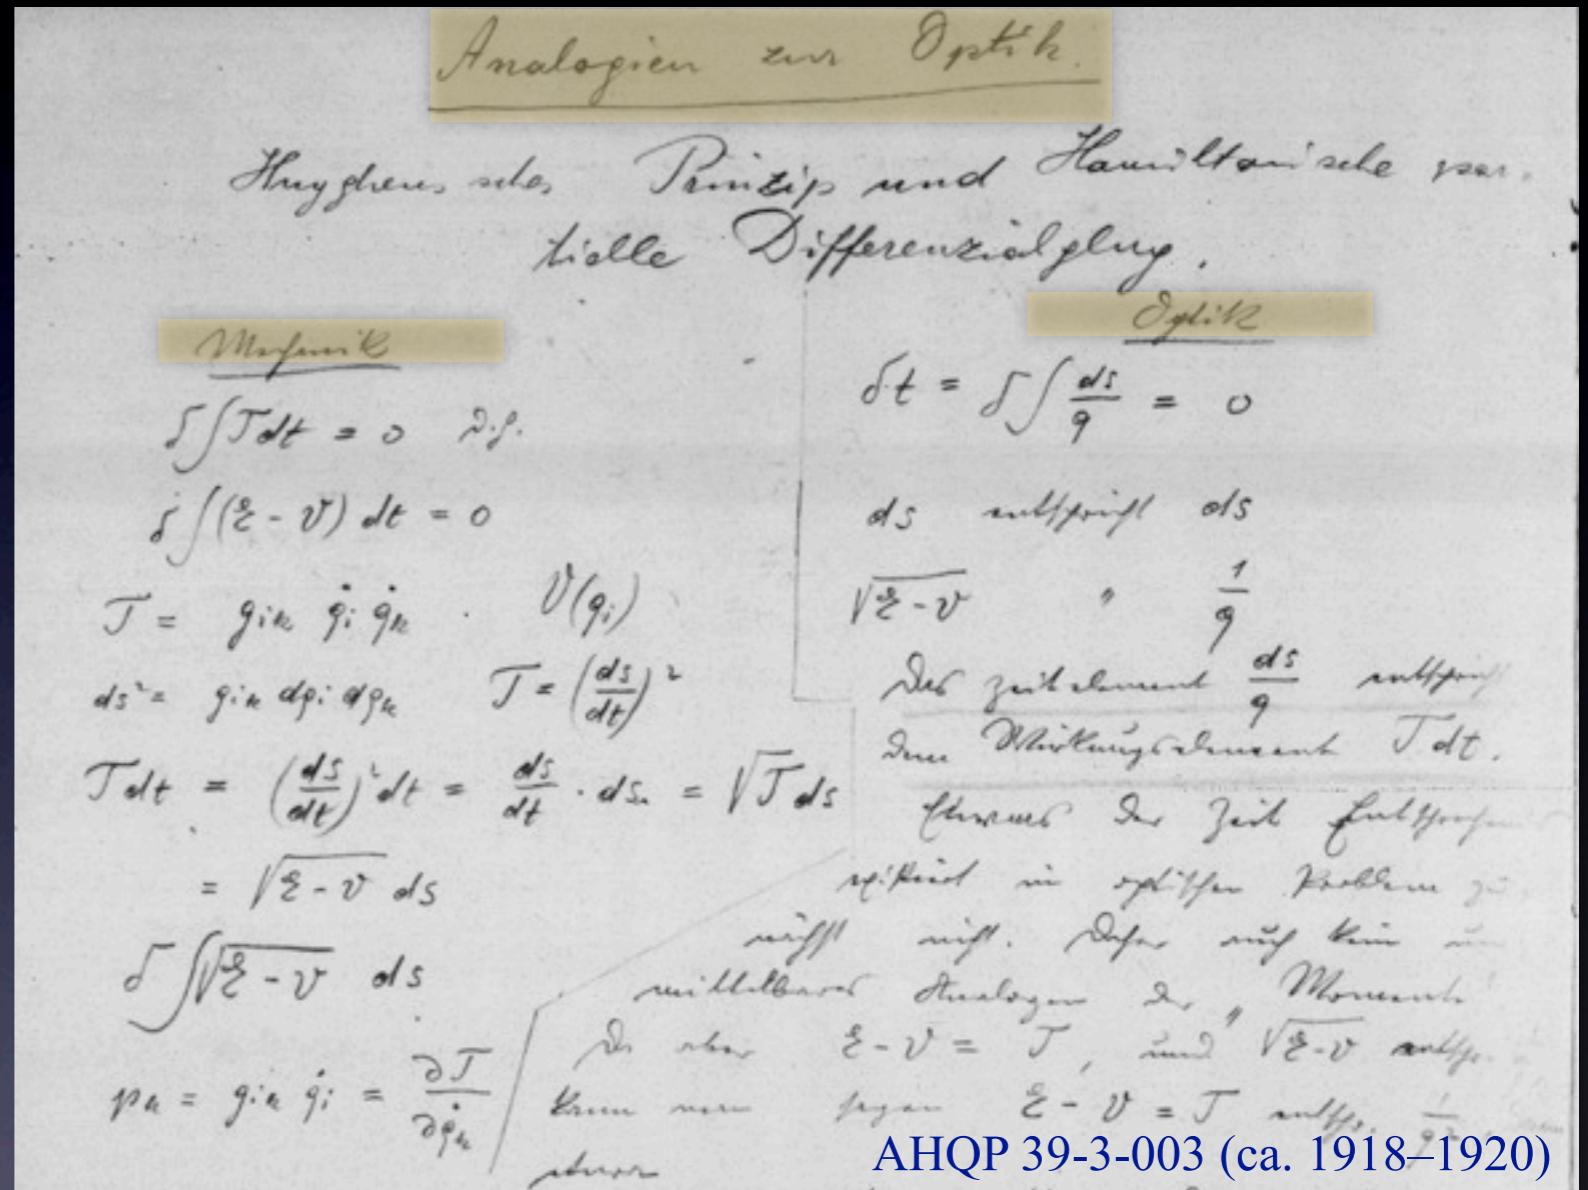 Analogien zur Optik.
Huyghenssches Prinzip und Hamiltonische par-
tielle Differenzialglng.
Mechanik
δ∫T dt = 0 D.h.
δ∫(E - V) dt = 0
T = g_{ik} q̇_i q̇_k . V(q_i)
ds² = g_{ik} dq_i dq_k T = (ds/dt)²
T dt = (ds/dt)² dt = ds/dt · ds = √T ds
= √(E - V) ds
δ∫√(E - V) ds
p_k = g_{ik} q̇_i = ∂T/∂q̇_k
Optik
δt = δ∫ ds/q = 0
ds entspricht ds
√(E - V) " 1/q
Das Zeitelement ds/q entspricht
dem Wirkungselement T dt.
Etwas der Zeit
existiert im optischen Problem zu
nächst nicht. Daher auch kein un
mittelbares Analogon der „Momente
Da aber E - V = T, und √(E - V) entspr.
kann man sagen E - V = T entspr.
etwa
AHQP 39-3-003 (ca. 1918–1920)